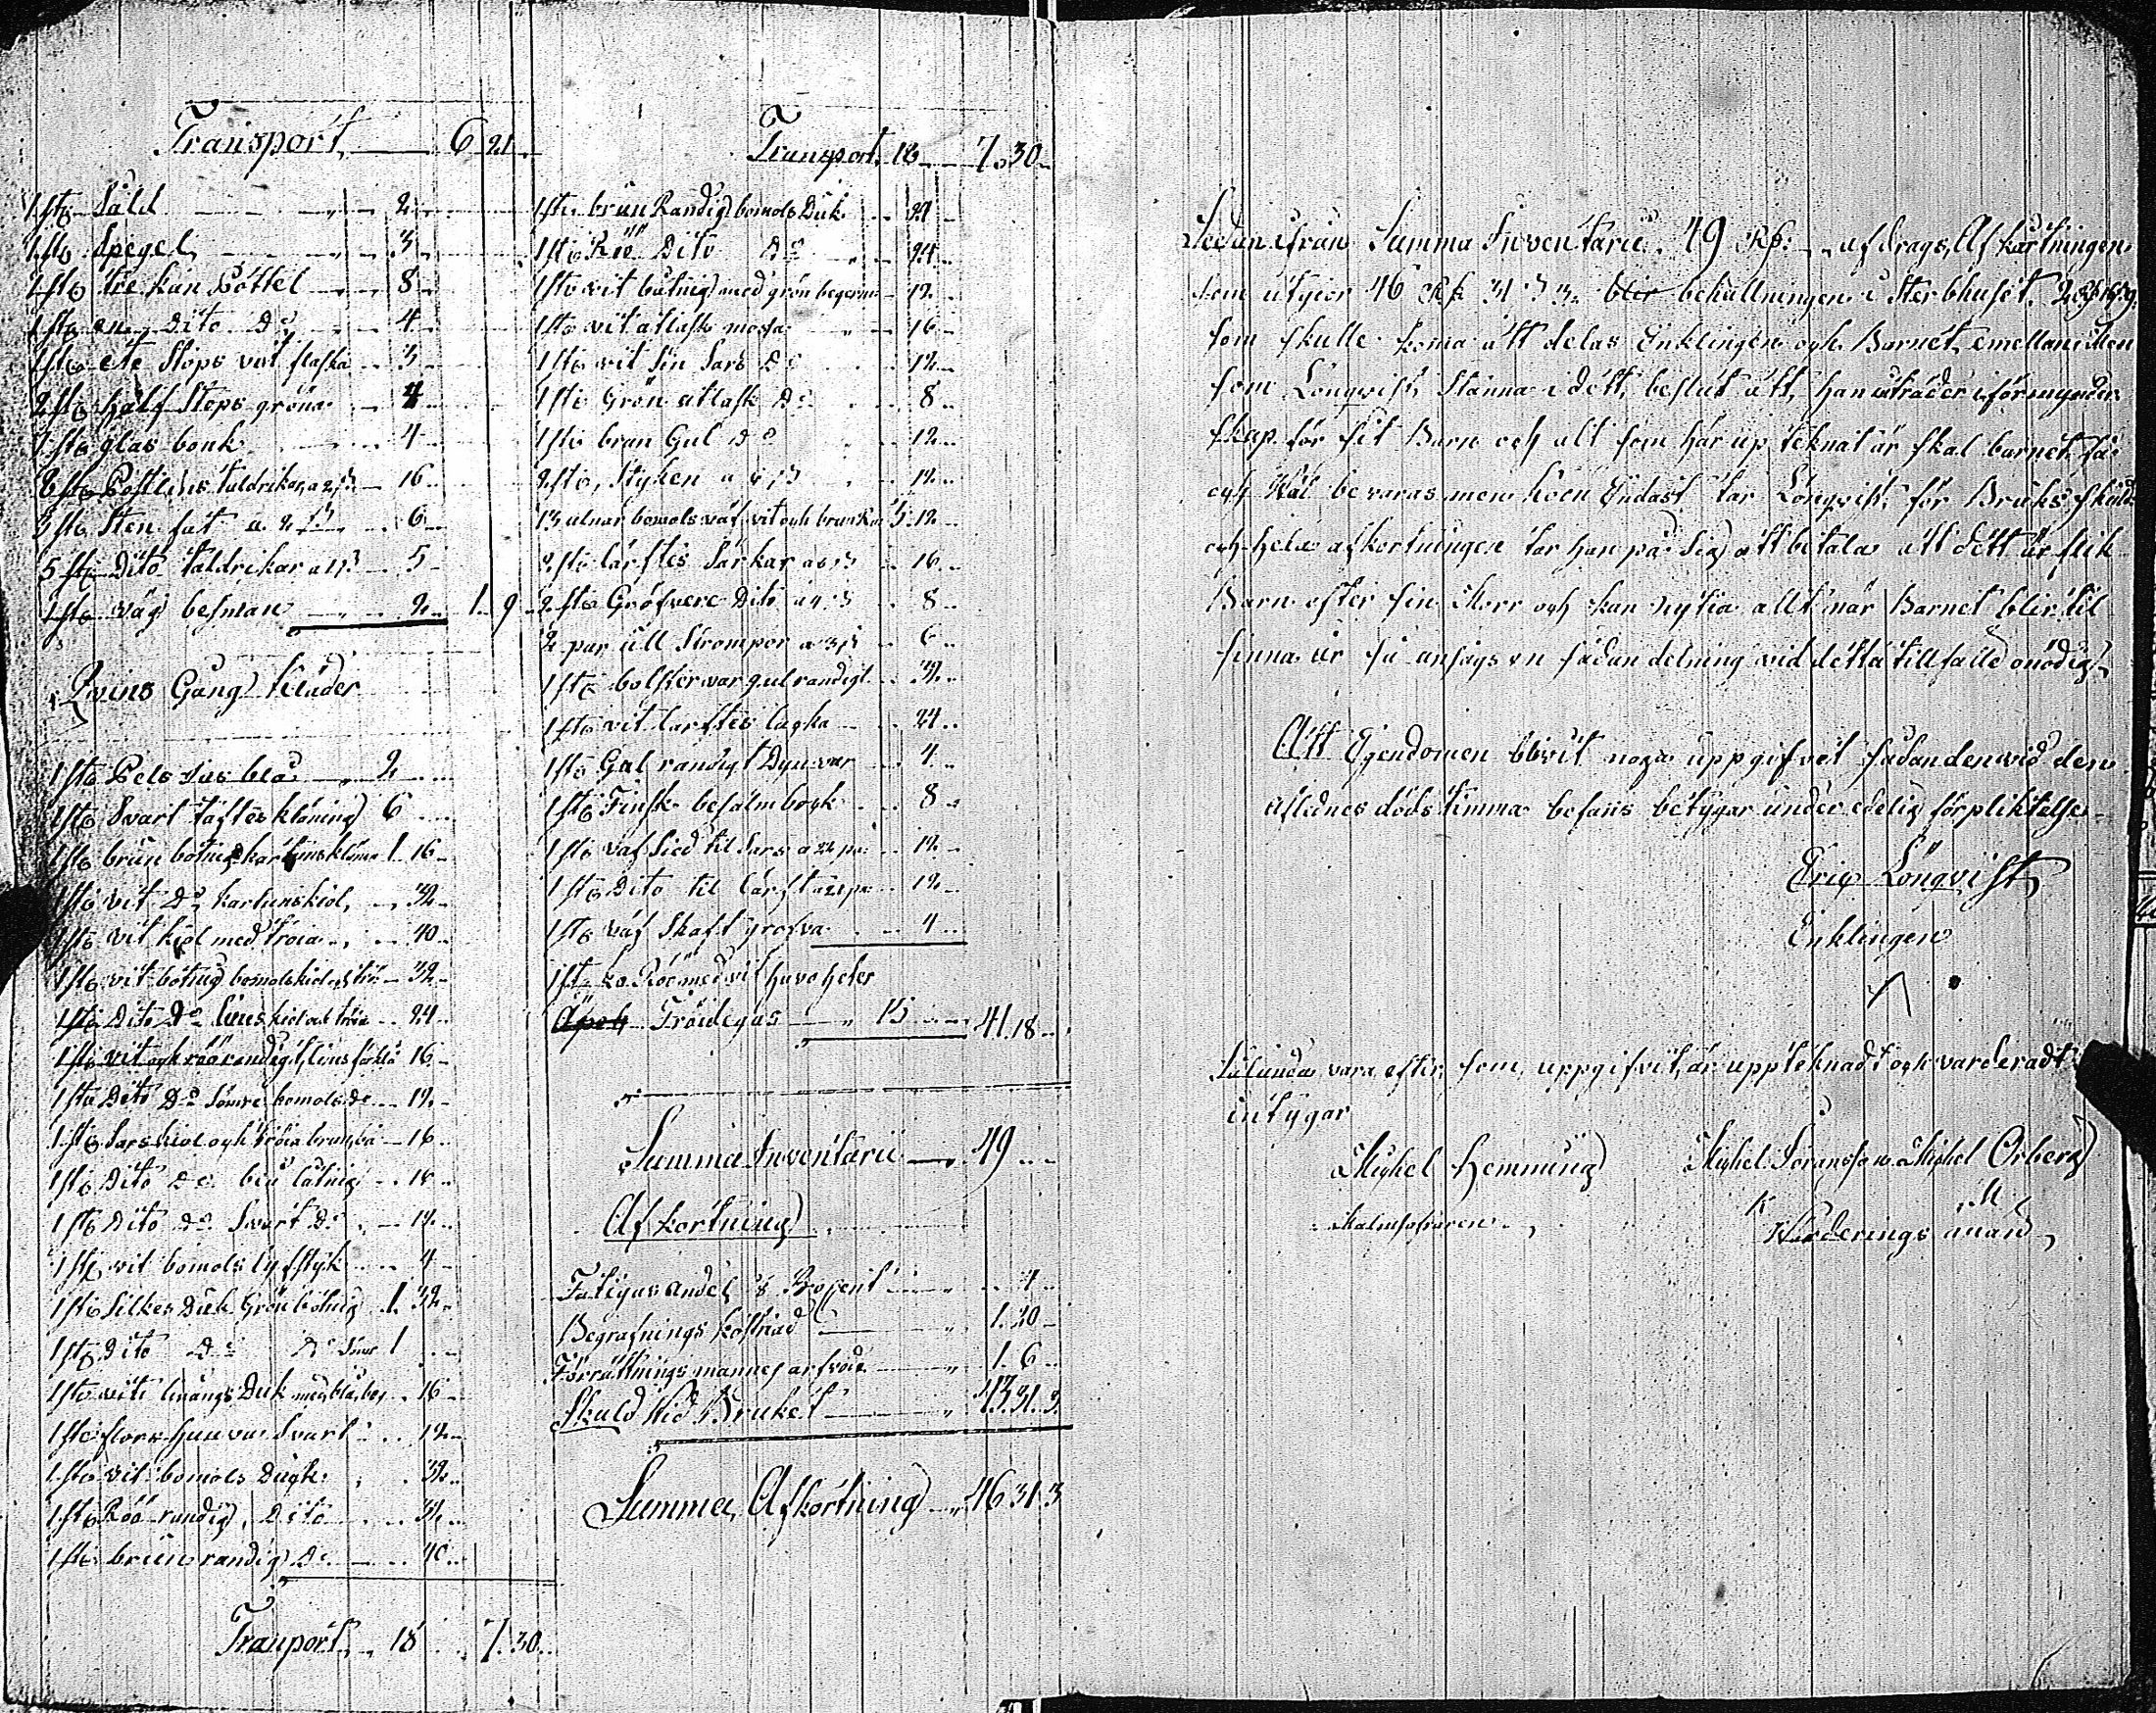 Transport 6 21
1 st: Såld 2
1 st: Spegel 3
1 st: tre kan Bóttel 8
1 st: en Dito D:o 4
1 st: ett Stops vit flaska 3
2 st: half Stops gröna 4
1 st: glas bonk 4
8 st: Postlins taldrikar a 2 16
3 st: Sten fat a 2 6
5 st: Dito taldrikar a 1 5
1 st: våg besman 2 1 9
Qvins Gång Kläder
1 st: Pels blå 2
1 st: Svart täftes kläning 6
1 st: brun botnig kartuns kläning 1 16
1 st: vit D:o kartunskiol 32
1 st: vit kiol med tröia 40
1 st: vit botnig bomolskiol 32
1 st: Dito D:o kiol och tröia 24
1 st: vit och röörandigt 16
1 st: Dito D:o Sämre bomols d:o 12
1 st: Sarskiol och tröia brun 16
1 st: Dito D:o blå båtnig 18
1 st: Dito D:o Svart D:o 12
1 st: vit bomols lifstyk 4
1 st: Silkes Duk Grön bótnig 1 32
1 st: Dito D:o D:o Sämre 1
1 st: vit Duk med blå 16
1 st: flors huuva Svart 12
1 st: vit bomols Dugk 32
1 st: Röö randig Dito 32
1 st: brun randig D:o 40
Tranport 18 7 30
Transport 18 7 30
1 st: brun Randig bomols Duk 32
1 st: Röö Dito D:o 24
1 st: vit båtnig med grön 12
1 st: vit atlask mössa 16
1 st: vit fin Sars D:o 12
1 st: Grön atlask D:o 8
1 st: bran Gul D:o 12
2 st: Styken a 6 12
13 alnar bomols väf vit och brun 3 12
2 st: lärftes Särkar a 8 16
2 st: Gröfvere Dito a 4 8
2 par ull Strompor a 3 6
1 st: bolstervar gulrandigt 32
1 st: vit larftes lagka 24
1 st: Gul randigt Dynvar 4
1 st: Finsk besalm bock 8
1 st: väf Sied til Sars a 22 12
1 st: Dito til lärft 12
1 st: väf Skaft grofva 4
1 st: ko Röö med vit huvo heter
Fröidegås 15 41 18
Summa Inventarii 49
Afkortning
Fatigas andel 8 Prosent 4
Begrafnings kostnad 1 20
Förrättnings mannes arfvode 1 6
Skuld vid Bruket 43 31 3
Summa, Afkortning 46 31 3
Sedan ifrån Summa Inventarie 49 afdrags, Afkortningen
som utgior 46 31 3 blir behållningen i Sterbhuset 2
som skulle koma att delas Enklingen och Barnet emellan men
som Lónqvist Stanna i dett beslut att han inträder i förmynder
skap för sit Barn och alt som här up teknat är skal barnet få
och Väl bevaras men koen Endast tar Lónqvist för Bruks skuld
och hela afkortningen tar han på Sig att betala att dett är flik
Barn efter sin Mor och kan nytia allt när Barnet blir til
sinna år Så ansågs en sådan delning vid detta tillfälle onödigt
Att Egendomen blivit noga uppgifvet sådan den vid den
aflednes döds timma befans betygar under edelig förpliktelse
Eriq Lönqvist
Enklingen
Sålunda vara, efter som, uppgifvit, är uppteknadt och varderadt
intygar
Mickel Hemming Mickel Göransson Mickel Orberg
Värderings män